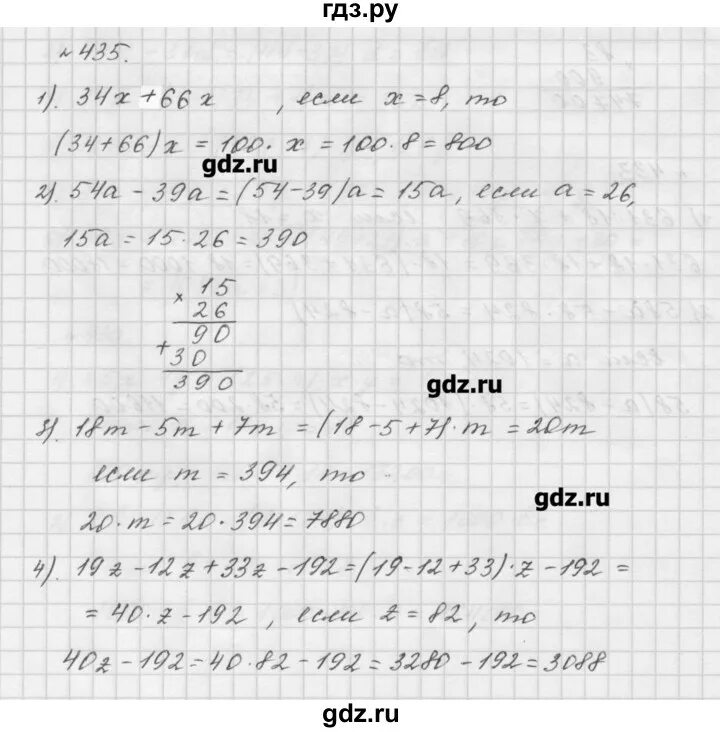 гдз.ру
№ 435.
1). 34x + 66x , если x = 8, то
(34+66)x = 100 · x = 100 · 8 = 800
gdz.ru
2). 54a - 39a = (54-39)a = 15a, если a = 26,
15a = 15 · 26 = 390
× 15
26
90
+ 30
390
gdz.ru
3). 18m - 5m + 7m = (18 - 5 + 7) · m = 20m
если m = 394, то
gdz.ru
20 · m = 20 · 394 = 7880
4). 19z - 12z + 33z - 192 = (19 - 12 + 33) · z - 192 =
= 40 · z - 192 , если z = 82, то
40z - 192 = 40 · 82 - 192 = 3280 - 192 = 3088
gdz.ru